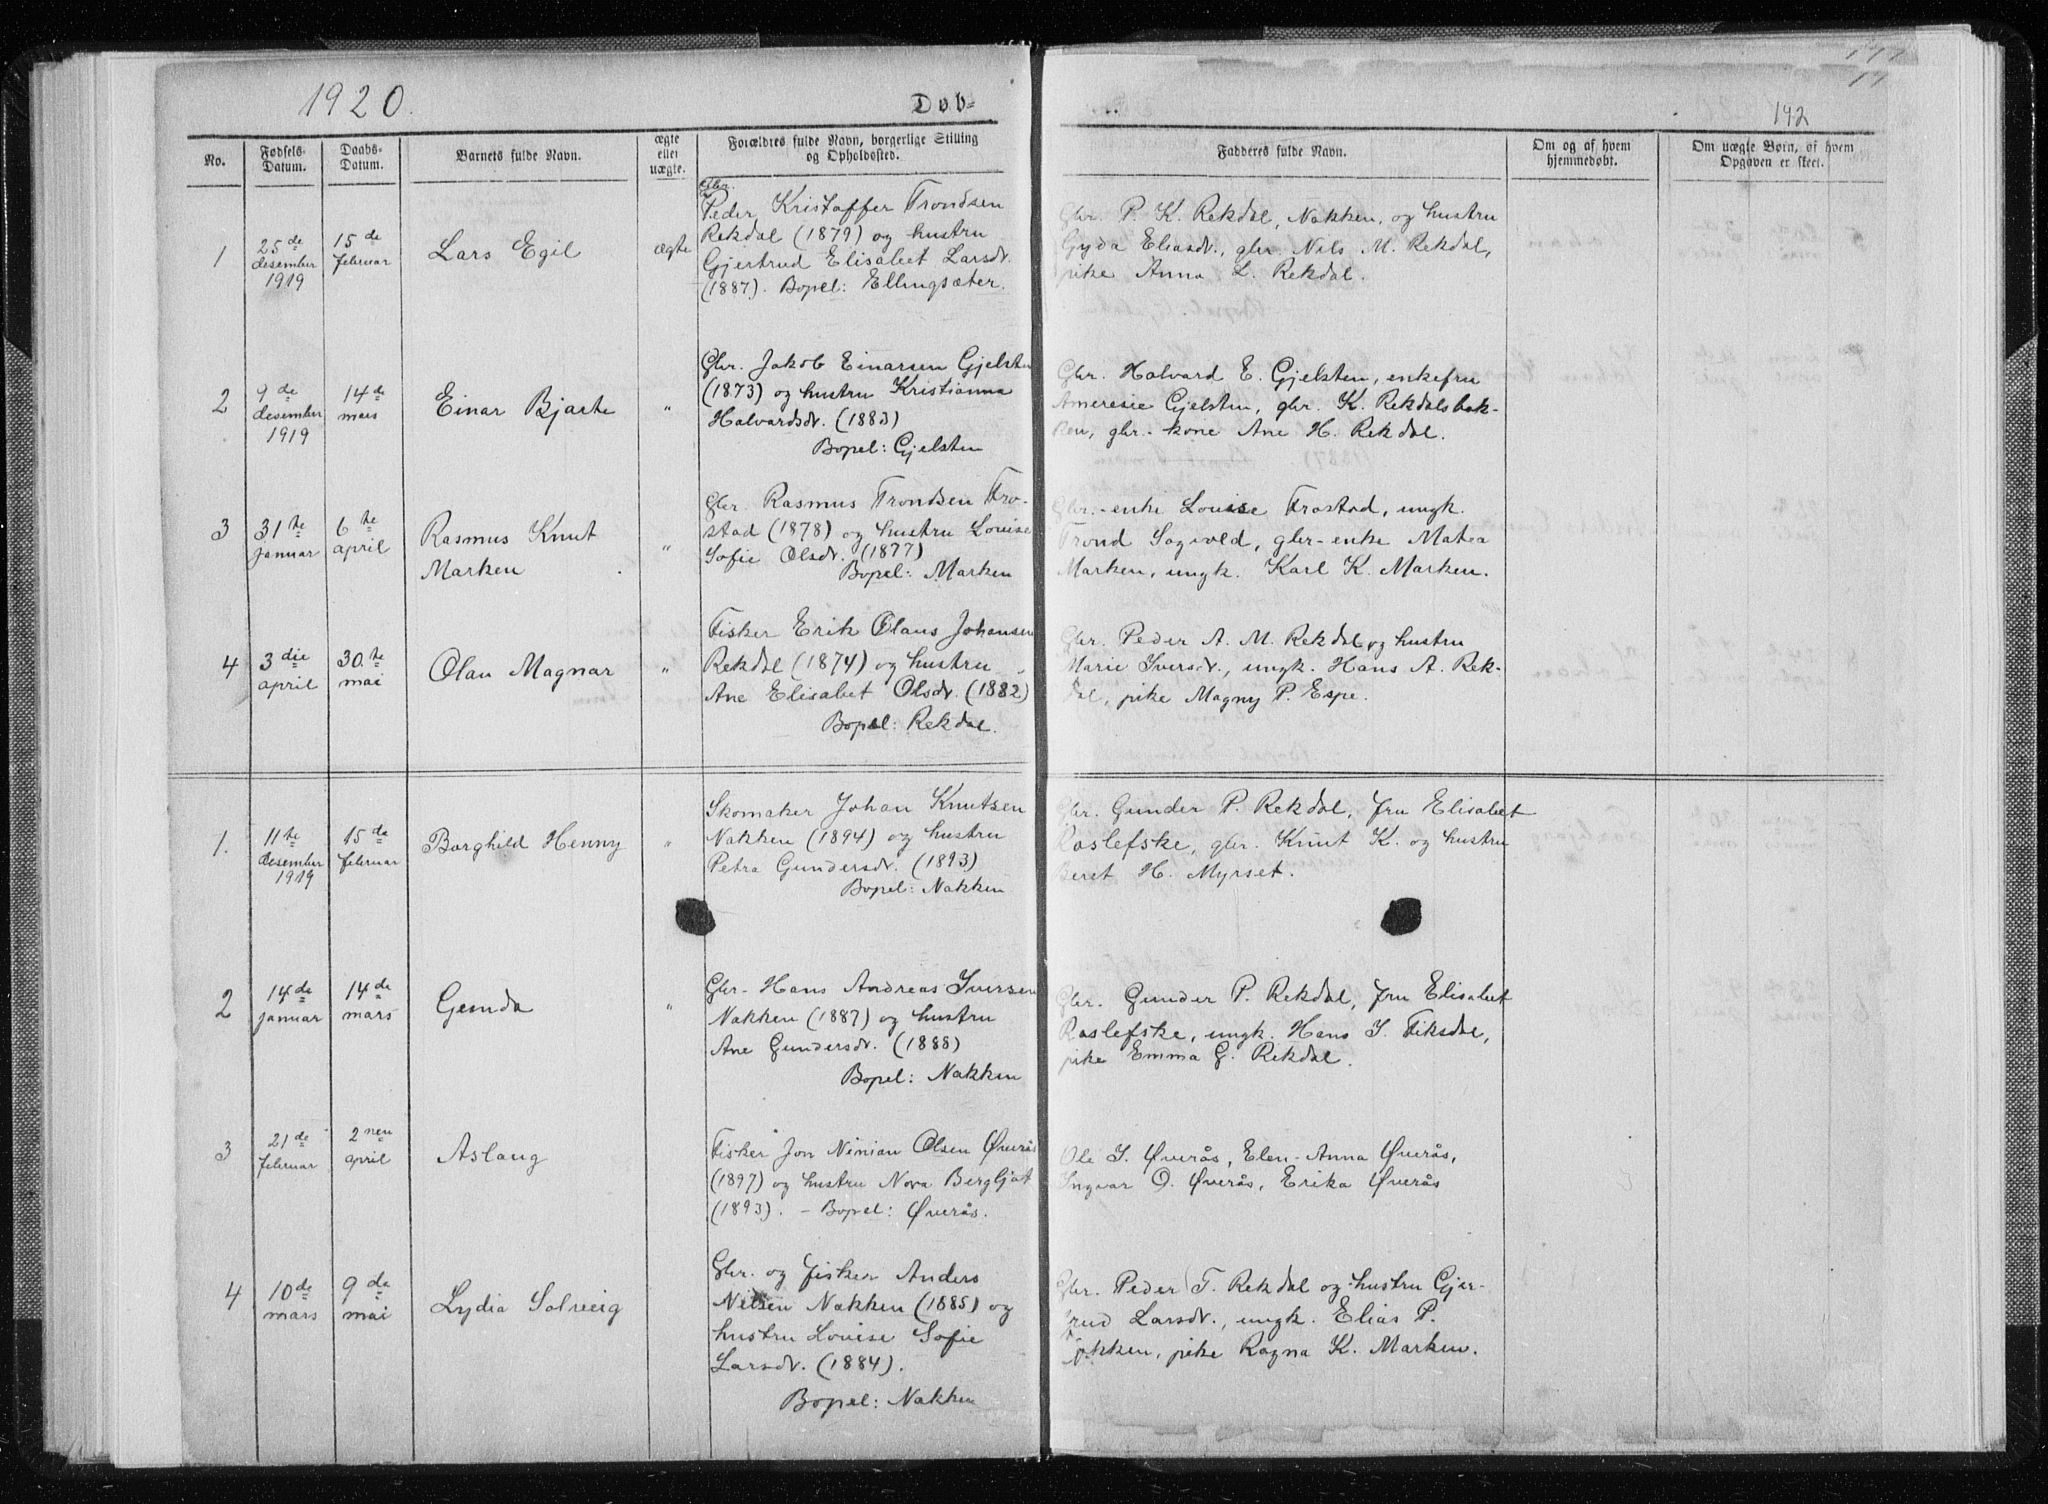 1920.
Døb-
142
No.
Fødsels-
Datum.
Daabs-
Datum.
Barnets fulde Navn.
ægte
eller
uægte.
Forældres fulde Navn, borgerlige Stilling
og Opholdssted.
Fadderes fulde Navn.
Om og af hvem
hjemmedøbt.
Om uægte Børn, af hvem
Opgaven er skeet.
1
25de
desember
1919
15de
februar
Lars Egil
ægte
Gbr.
Peder Kristoffer Trondsen
Rekdal (1879) og hustru
Gjertrud Elisabet Larsdr.
(1887). Bopel: Ellingsæter.
Gbr. P. K. Rekdal, Nakken, og hustru
Gyda Eliasdr., gbr. Nils M. Rekdal,
pike Anna L. Rekdal.
2
9de
desember
1919
14de
mars
Einar Bjarte
"
Gbr. Jakob Einarsen Gjelsten
(1873) og hustru Kristianna
Halvardsdr. (1883)
Bopel: Gjelsten
Gbr. Halvard E. Gjelsten, enkefru
Ameresie Gjelsten, gbr. K. Rekdalsbak-
ken, gbr.-kone Ane H. Rekdal.
3
31te
januar
6te
april
Rasmus Knut
Marken
"
Gbr. Rasmus Trondsen Fro-
stad (1878) og hustru Louise
Sofie Olsdr. (1877)
Bopel: Marken
Gbr.-enke Louise Frostad, ungk.
Trond Sogvold, gbr-enke Matea
Marken, ungk. Karl K. Marken.
4
3die
april
30.te
mai
Olau Magnar
"
Fisker Erik Olaus Johansen
Rekdal (1874) og hustru
Ane Elisabet Olsdr. (1882)
Bopel: Rekdal.
Gbr. Peder A. M. Rekdal og hustru
Marie Iversdr., ungk. Hans A. Rek-
dal, pike Magny P. Espe.
1.
11te
desember
1919
15de
februar
Borghild Henny
"
Skomaker Johan Knutsen
Nakken (1894) og hustru
Petra Gundersdr. (1893)
Bopel: Nakken
Gbr. Gunder P. Rekdal, fru Elisabet
Roslefske, gbr. Knut K. og hustru
Beret H. Myrset.
2
14de
januar
14de
mars
Gemda
"
Gbr- Hans Andreas Iversen
Nakken (1887) og hustru
Ane Gundersdr. (1888)
Bopel: Nakken
Gbr. Gunder P. Rekdal, fru Elisabet
Roslefske, ungk. Hans I. Fiksdal,
pike Emma G. Rekdal.
3
21de
februar
2nen
april
Aslaug
Fisker Jon Ninian Olsen Øverås
(1897) og hustru Nora Bergljot
(1893). - Bopel: Øverås.
Ole I. Øverås, Elen-Anna Øverås,
Ingvar O. Øverås, Erika Øverås
4
10de
mars
9de
mai
Lydia Solveig
Gbr. og fisker Anders
Nilsen Nakken (1885) og
hustru Louise Sofie
Larsdr. (1884).
Bopel: Nakken
Gbr. Peder T. Rekdal og hustru Gjer-
trud Larsdr., ungk. Elias P.
Nakken, pike Ragna K. Marken.